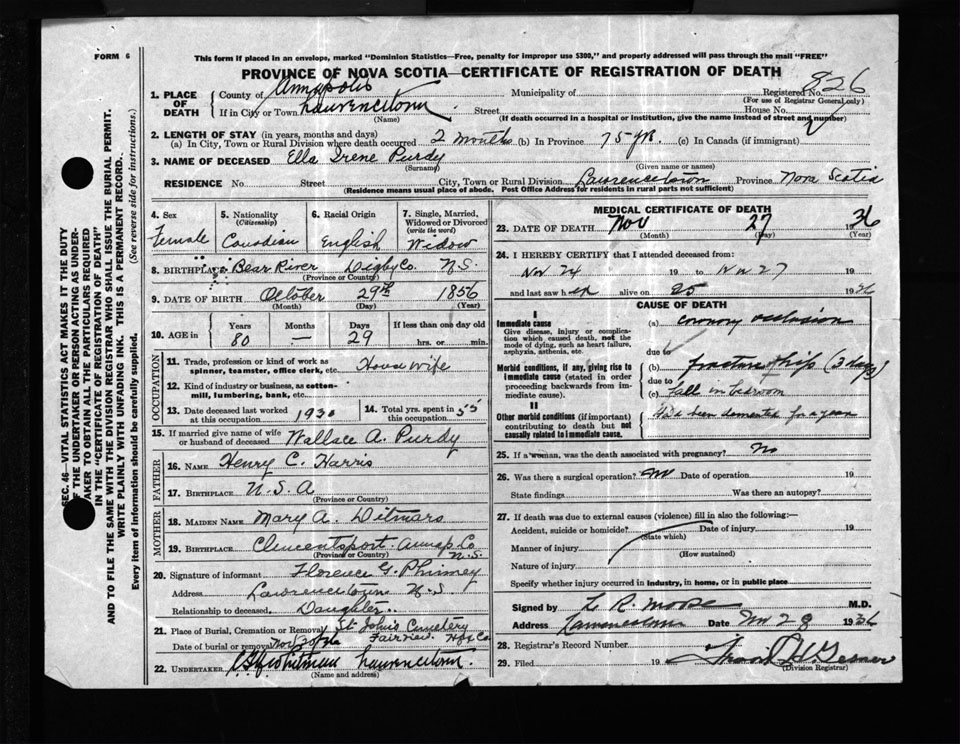 FORM 6
This form if placed in an envelope, marked "Dominion Statistics—Free, penalty for improper use $300," and properly addressed will pass through the mail "FREE"
PROVINCE OF NOVA SCOTIA—CERTIFICATE OF REGISTRATION OF DEATH
826
1. PLACE OF DEATH County of Annapolis Municipality of Registered No.
(For use of Registrar General only)
If in City or Town Lawrencetown Street House No.
(Name) (If death occurred in a hospital or institution, give the name instead of street and number)
2. LENGTH OF STAY (in years, months and days)
(a) In City, Town or Rural Division where death occurred 2 months (b) In Province 75 yr. (c) In Canada (if immigrant)
3. NAME OF DECEASED Ella Irene Purdy
(Surname) (Given name or names)
RESIDENCE No Street City, Town or Rural Division Lawrencetown Province Nova Scotia
(Residence means usual place of abode. Post Office Address for residents in rural parts not sufficient)
4. Sex 5. Nationality (Citizenship) 6. Racial Origin 7. Single, Married, Widowed or Divorced (write the word)
Female Canadian English Widow
8. BIRTHPLACE Bear River Digby Co. N.S.
(Province or Country)
9. DATE OF BIRTH October 29th 1856
(Month) (Day) (Year)
10. AGE in Years Months Days If less than one day old
80 — 29 hrs. or min.
OCCUPATION
11. Trade, profession or kind of work as spinner, teamster, office clerk, etc. House wife
12. Kind of industry or business, as cotton-mill, lumbering, bank, etc.
13. Date deceased last worked at this occupation 1930 14. Total yrs. spent in this occupation 55
15. If married give name of wife or husband of deceased Wallace A. Purdy
FATHER
16. NAME Henry C. Harris
17. BIRTHPLACE N.S.A
(Province or Country)
MOTHER
18. MAIDEN NAME Mary A. Ditmars
19. BIRTHPLACE Clementsport Annap. Co N.S.
(Province or Country)
20. Signature of informant Florence G. Phinney
Address Lawrencetown N.S
Relationship to deceased Daughter
21. Place of Burial, Cremation or Removal St. John's Cemetery
Fairview Hfx Co
Date of burial or removal Nov 30
22. UNDERTAKER Whitman Lawrencetown
(Name and address)
MEDICAL CERTIFICATE OF DEATH
23. DATE OF DEATH Nov 27 1936
(Month) (Day) (Year)
24. I HEREBY CERTIFY that I attended deceased from:
Nov 24 19 to Nov 27 19
and last saw her alive on 25 1936
CAUSE OF DEATH
I
Immediate cause
Give disease, injury or complication which caused death, not the mode of dying, such as heart failure, asphyxia, asthenia, etc.
(a) coronary occlusion
due to
Morbid conditions, if any, giving rise to immediate cause (stated in order proceeding backwards from immediate cause).
(b) fracture of hip (3 days)
due to
(c) fall in bedroom
II
Other morbid conditions (if important) contributing to death but not causally related to immediate cause.
Had been demented for a year
25. If a woman, was the death associated with pregnancy? No
26. Was there a surgical operation? No Date of operation 19
State findings Was there an autopsy?
27. If death was due to external causes (violence) fill in also the following:—
Accident, suicide or homicide? Date of injury 19
(State which)
Manner of injury
(How sustained)
Nature of injury
Specify whether injury occurred in industry, in home, or in public place
Signed by L. R. Morse M.D.
Address Lawrencetown Date Nov 28 1936
28. Registrar's Record Number
29. Filed 19
(Division Registrar)
SEC. 46—VITAL STATISTICS ACT MAKES IT THE DUTY
OF THE UNDERTAKER OR PERSON ACTING AS UNDER-
TAKER TO OBTAIN ALL THE PARTICULARS REQUIRED
IN THE "CERTIFICATE OF REGISTRATION OF DEATH"
AND TO FILE THE SAME WITH THE DIVISION REGISTRAR WHO SHALL ISSUE THE BURIAL PERMIT.
WRITE PLAINLY WITH UNFADING INK. THIS IS A PERMANENT RECORD.
Every item of information should be carefully supplied. (See reverse side for instructions.)